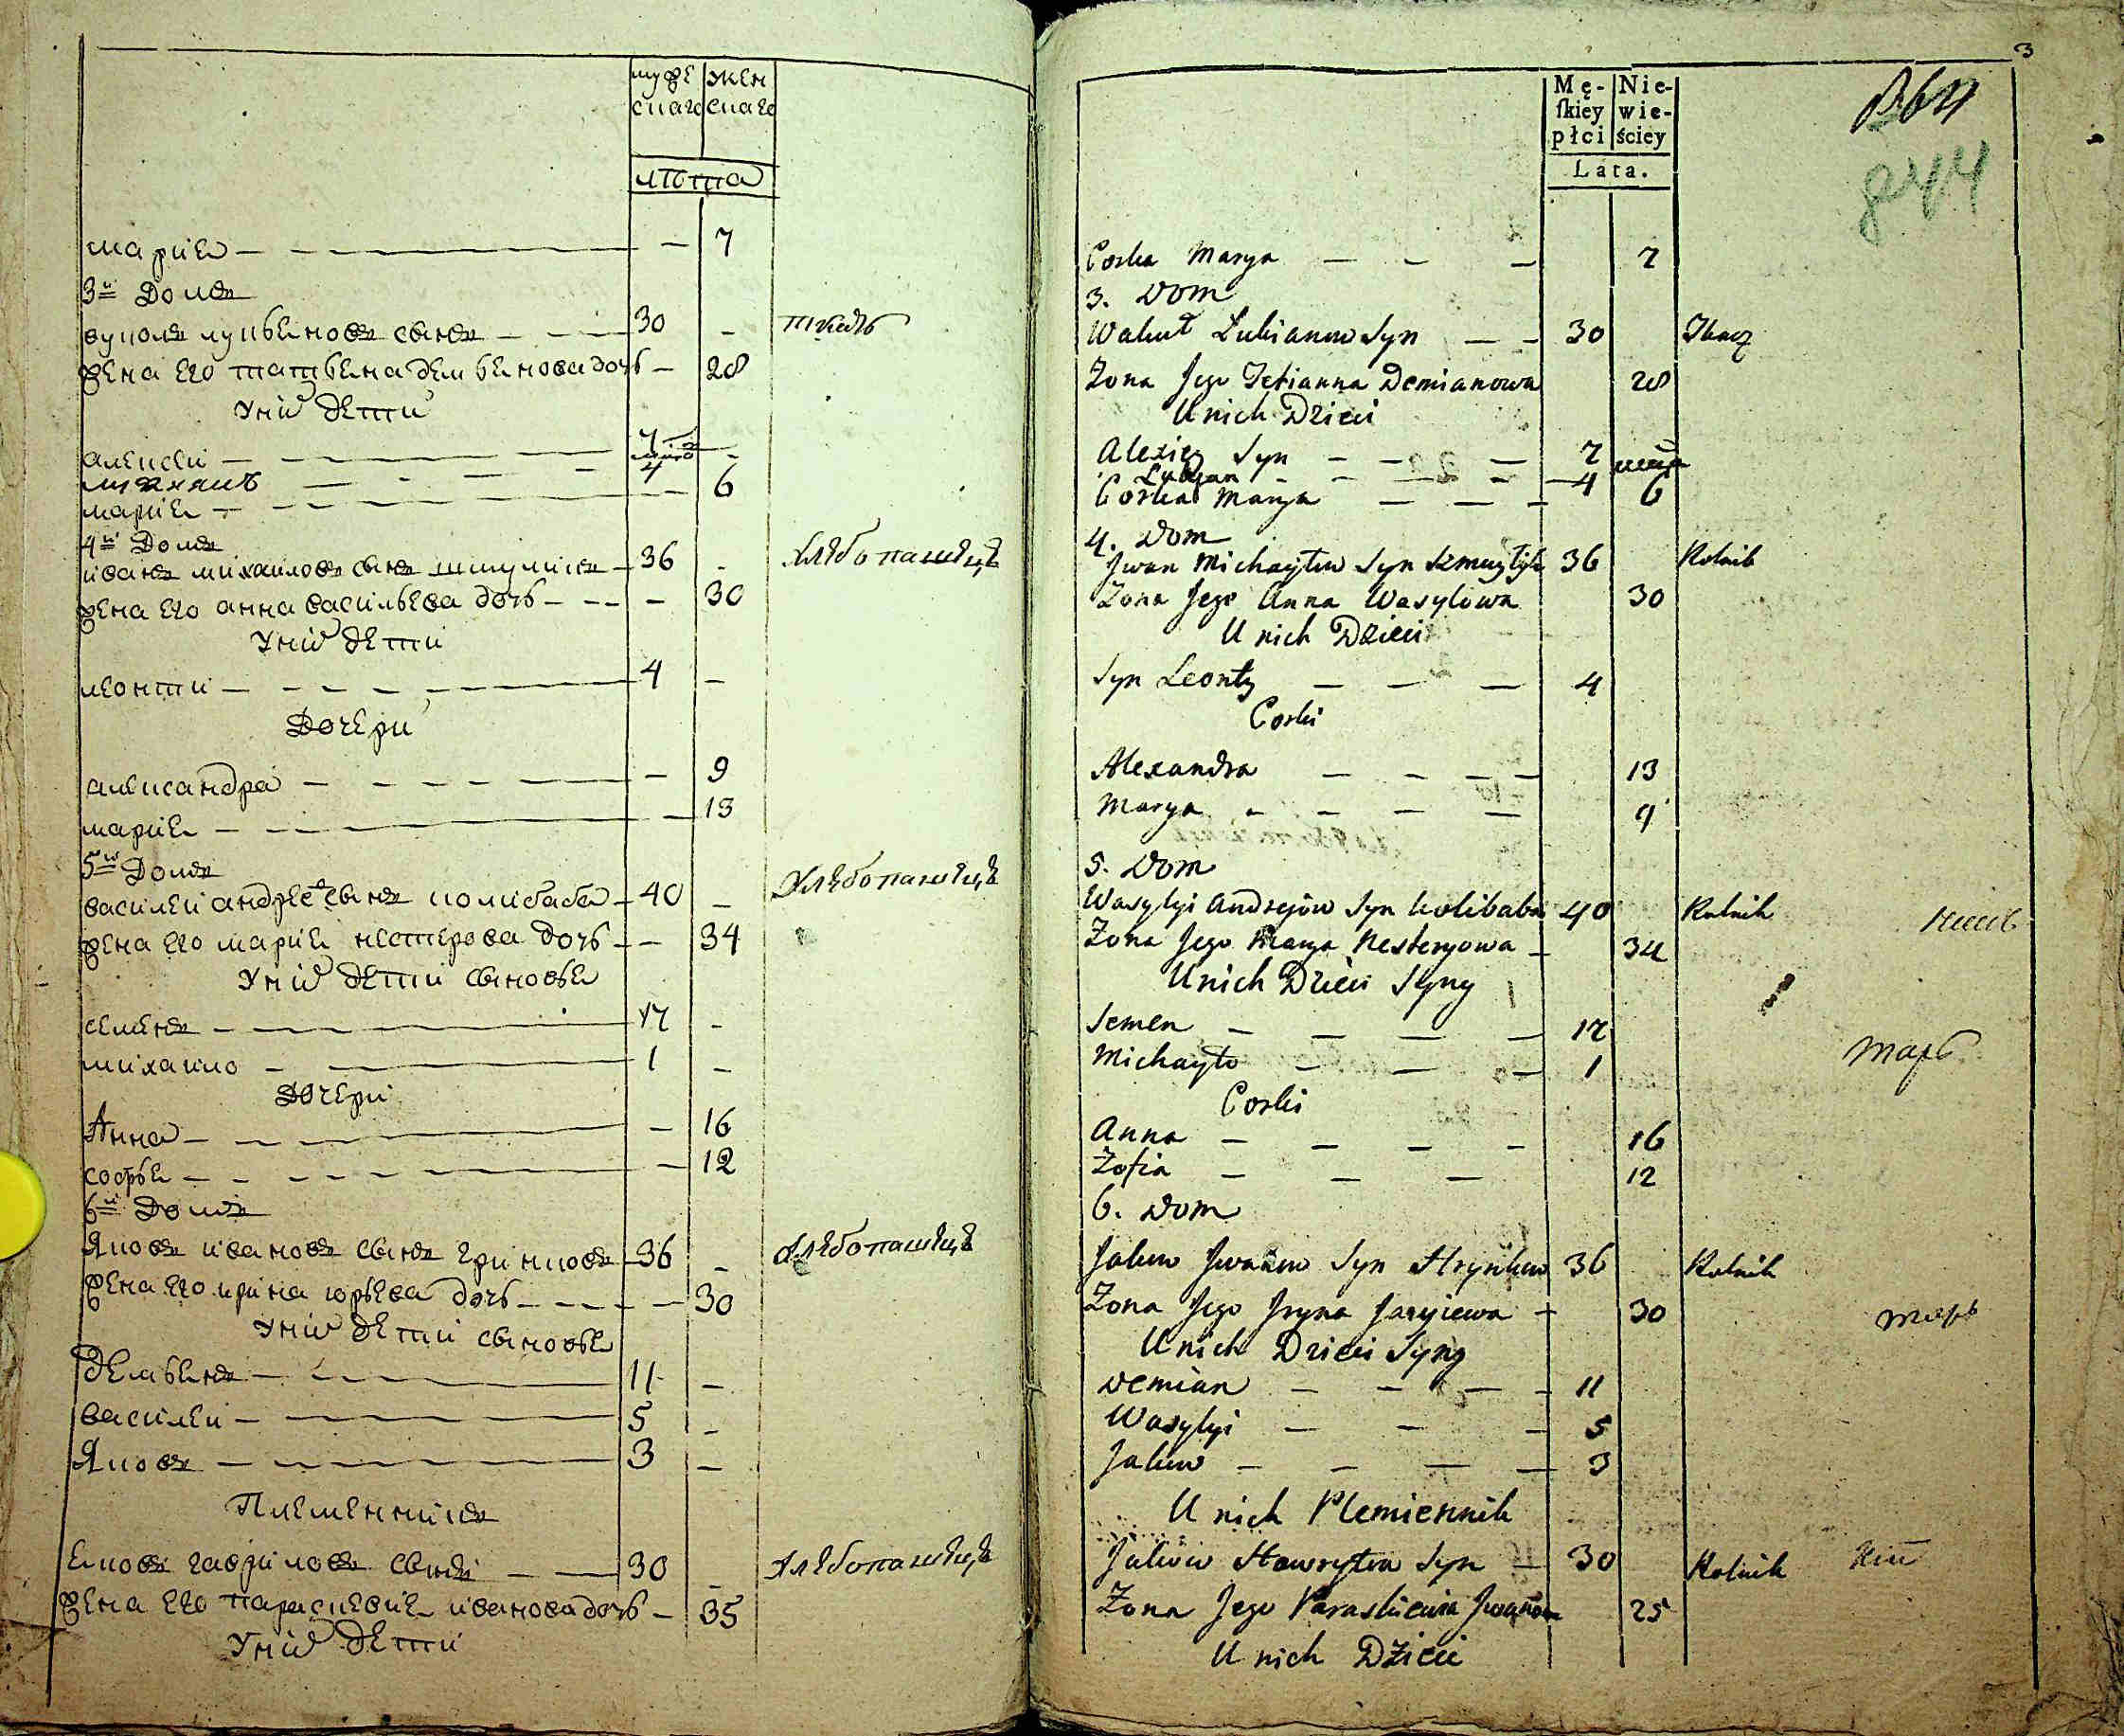 муже жен
скаго скаго
лѣта
мариѧ — — 7
3й Домъ
вуколъ лукьѧновъ сынъ — 30 — ткачь
жена его татьѧна демьѧнова дочь — 28
У них дети
алексеи — 7 —
4
мариѧ — 6
4й Домъ
иванъ михаиловъ сынъ шмуликъ — 36 — хлѣбопашецъ
жена его анна васильева дочь — — 30
У них дети
леонти — 4 —
Дочери
алеѯандра — — 9
мариѧ — — 13
5й Домъ
василеи андреевъ сынъ колибаба — 40 — хлѣбопашецъ
жена его мариѧ нестерова дочь — — 34
У них дети сыновьѧ
семенъ — 17 —
михаило — 1 —
Дочери
Анна — — 16
софьѧ — — 12
6й Домъ
Яковъ ивановъ сынъ гринковъ — 36 — хлѣбопашецъ
жена его ирина юрьева дочь — — 30
У них дети сыновьѧ
демьѧнъ — 11 —
василеи — 5 —
Яковъ — 3 —
Племенникъ
ѧковъ гавриловъ сынъ — 30 — хлѣбопашецъ
жена его параскевиѧ иванова дочь — 35
У них дети
3
Mę- Nie-
skiey wie-
płci ściey
Lata.
844
Corka Marya — — — 7
3. Dom
Wakuł Lukianow Syn — — 30 Tkacz
Zona Jego Tetianna Demianowa 28
U nich Dzieci
Alexiey Syn — — — 7
Lukjan — — — 4
Corka Marya — — — 6
4. Dom
Jwan Michayłow Syn Szmuylik 36 Rolnik
Zona Jego Anna Wasylowa 30
U nich Dzieci
Syn Leonty — — — 4
Corki
Alexandra — — — — 13
Marya — — — — 9
5. Dom
Wasylyi Andrejow Syn Kolibaba 40 Rolnik
Zona Jego Marya Nesterowa — 34
U nich Dzieci Syny
Semen — — — — 17
Michayło — — — 1
Corki
Anna — — — — 16
Zofia — — — 12
6. Dom
Jakow Jwanow Syn Hrynkow 36 Rolnik
Zona Jego Jryna Juryiewa — 30
U nich Dzieci Syny
Demian — — — — 11
Wasylyi — — — 5
Jakow — — — — 3
U nich Plemiennik
Jakow Hawryłow Syn — 30 Rolnik
Zona Jego Paraskiewia Jwanowa 25
U nich Dzieci